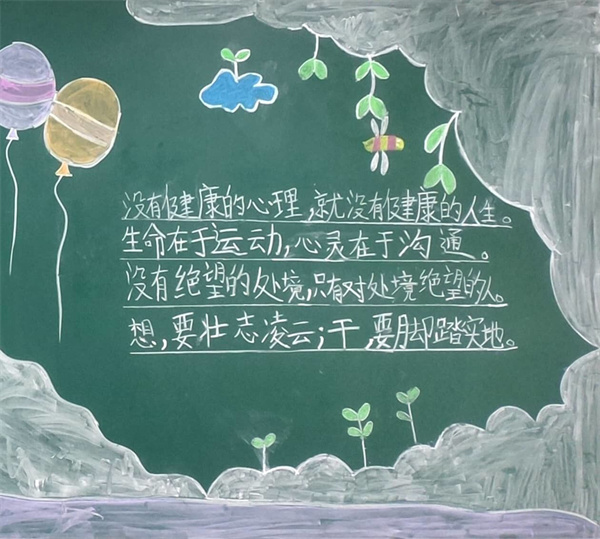 没有健康的心理,就没有健康的人生。
生命在于运动,心灵在于沟通。
没有绝望的处境,只有对处境绝望的人。
想,要壮志凌云;干,要脚踏实地。